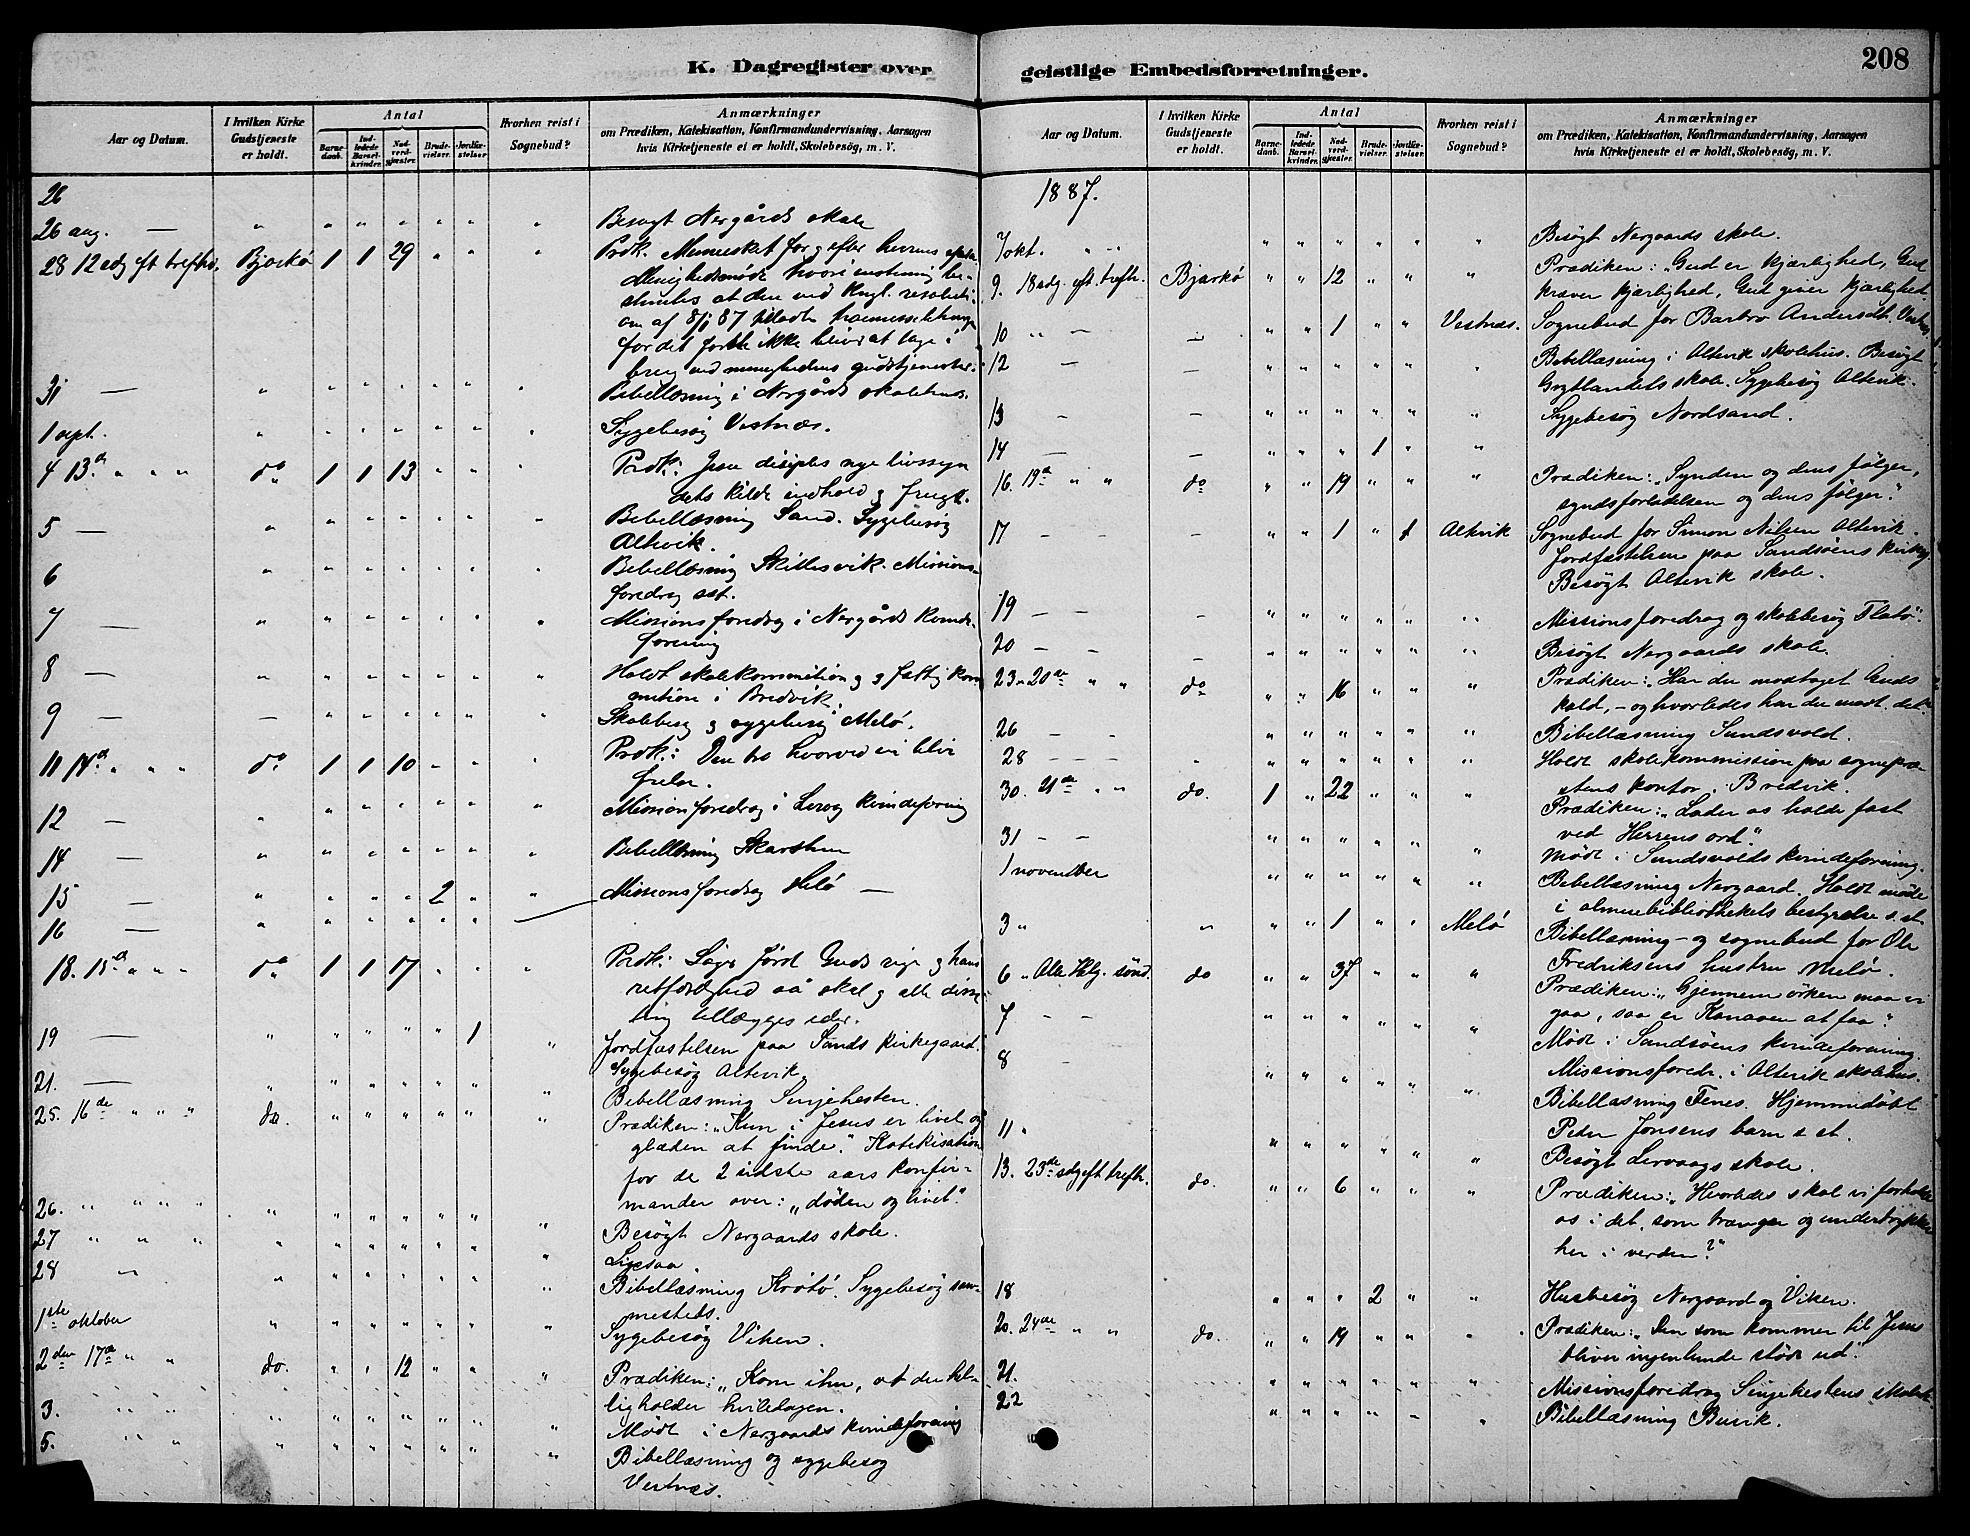 K. Dagregister over geistlige Embedsforretninger.
208
Aar og Datum.
I hvilken Kirke Gudstjeneste er holdt.
Antal
Barnedaab.
Indledede Barselkvinder.
Nadverdgjæster.
Brudevielser.
Jordfæstelser.
Hvorhen reist i Sognebud?
Anmærkninger
om Prædiken, Katekisation, Konfirmandundervisning, Aarsagen
hvis Kirketjeneste ei er holdt, Skolebesøg, m. V.
26
26 aug. — " " " " " " " Besøgt Nergårds skole
28 12 sdg eft trefh. Bjarkö 1 1 29 " " " Prdk. Mennesket før og efter
Menighedsmöde hvori
at den ved Kngl. resoluti
on af 8/1 87
for det første ikke bliver at tage i
brug ved menighedens gudstjenester.
31 — " " " " " " " Bibellæsning i Nergårds skolehus.
1 sept. " " " " " " " Sygebesøg Vestnæs.
4 13d " " " do 1 1 13 " " " Prdk: Jesu disciples nye livssyn
dets kilde indhold og frugt.
5 — " " " " " " " Bibellæsning Sand. Sygebesøg
Altevik.
6 " " " " " " " Bibellæsning Skillesvik. Missions-
foredrag sst.
7 — " " " " " " " Missionsforedrag i Nergårds kvinde-
forening
8 — " " " " " " " Holdt skolekommission og fattigkom
mission i Bredvik.
9 — — " " " " " " Skolebesøg og sygebesøg Melö.
11 14d " " " do 1 1 10 " " " Prdk: Den tro hvorved vi blir
frelst.
12 — " " " " " " " Missionsforedrag i kvindeforening
14 — " " " " " " " Bibellæsning
15 — " " " " 2 " " Missionsforedrag Melö —
16 — " " " " " "
18. 15d " " do 1 1 17 " " " Prdk: Søger først Guds rige og hans
retfærdighed så skal og alle disse
ting tillægges eder.
19 — " " " " " 1 " Jordfæstelsen paa Sands kirkegaard.
Sygebesøg Altevik.
21. — " " " " " " " Bibellæsning Sinjehesten.
25. 16de " " " do. " " " " " " Prædiken: „Kun i Jesus er livet og
glæden at finde". Katekisation
for de 2 sidste aars konfir-
mander over: „döden og livet".
26. " " " " " " " " " " Besøgt Nergaards skole.
27 " " " " " " " " " " Ligesaa
28 " " " " " " " " Bibellæsning Krötö. Sygebesøg sam-
mesteds.
1ste oktober " " " " " " " Sygebesøg Viken.
2den 17d " " do. " " 12 " " Prædiken: „Kom ihu, at du hel-
ligholder hviledagen.
3. " " " " " " " " " Mödt i Nergaards kvindeforening
5. " " " " " " " " " Bibellæsning og sygebesøg
Vestnæs.
Aar og Datum.
I hvilken Kirke Gudstjeneste er holdt.
Antal
Barnedaab.
Indledede Barselkvinder.
Nadverdgjæster.
Brudevielser.
Jordfæstelser.
Hvorhen reist i Sognebud?
Anmærkninger
om Prædiken, Katekisation, Konfirmandundervisning, Aarsagen
hvis Kirketjeneste ei er holdt, Skolebesøg, m. V.
1887.
7 okt. " " " " " " " " Besøgt Nergaards skole.
9. 18 sdg. eft. trefh. Bjarkö " " 12 " " " Prædiken: „Gud er kjærlighed, Gud
kræver kjærlighed, Gud giver kjærlighed.
10 " — — " " 1 " " Vestnæs. Sognebud for Barbro Andersdt. Vestnæs
12 — — " " " " " " Bibellæsning i Altevik skolehus. Besøgt
Grøtlandets skole. Sygebesøg Altevik.
13 — — " " " " " " Sygebesøg Nordsand.
14 — — " " " 1 " "
16. 19d " " do " " 19 " " " Prædiken: „Synden og dens følger,
syndsforladelsen og dens følger."
17 — — — " " 1 " 1 Altevik Sognebud for Simon Nilsen Altevik.
Jordfæstelsen paa Sandsöens kirkeg.
Besøgt Altevik skole.
19 — — — " " " " " " Missionsforedrag og skolebesøg Flatö.
20 — — — " " " " " " Besøgt Nergaards skole.
23 20de " " do " " 16 " " " Prædiken: „Har du modtaget Guds
kald, — og hvorledes har du modt. det"
26 — — " " " " " " Bibellæsning Sundsvold.
28 — — " " " " " " " Holdt skolekommission paa sognepræ-
stens kontor i Bredvik.
30. 21de " " do. 1 " 22 " " " Prædiken: „Lader os holde fast
ved Herrens ord".
31 — — " " " " " " Mödt i Sundsvolds kvindeforening.
1 november " " " " " " Bibellæsning Nergaard. Holdt möde
i almuebibliothekets bestyrelse s. st.
3 " " " " 1 " " Melö Bibellæsning — og sognebud for Ole
Fredriksens hustru Melö.
6 " Alle Helg. sönd. do " " 37 " " " Prædiken: „Gjennem örken maa vi
gaa, saa er Kanaan at faa".
7 — — " " " " " " Mödt i Sandsöens kvindeforening.
8 — " " " " " " Missionsforedr. i Altevik skolehus.
Bibellæsning Fenes. Hjemmedöbt
Peder Jonsens barn s. st.
11 " " " " " " " Besøgt Lervaags skole.
13. 23de sdg eft trefh. do. " " 6 " " " Prædiken: „Hvorledes skal vi forholde
os i det, som trænger og undertrykker
her i verden?"
18 " " " 2 " " Husbesøg Nergaard og Viken.
20. 24de " " do. " " 19 " " " Prædiken: „Den som kommer til Jesus
bliver ingenlunde stödt ud".
21. " " " " " " Missionsforedrag Sinjehestens skolehus.
22 " " " " — " Bibellæsning